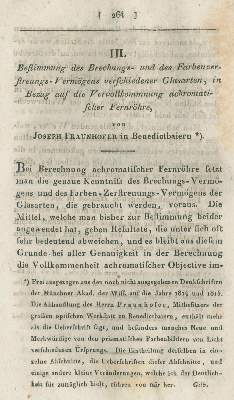 ( 264 )
III.
Bestimmung des Brechungs- und des Farbenzer-
streuungs-Vermögens verschiedener Glasarten, in
Bezug auf die Vervollkommnung achromati-
scher Fernröhre,
von
JOSEPH FRAUNHOFER in Benedictbaiern *).
Bei Berechnung achromatischer Fernröhre setzt
man die genaue Kenntniss des Brechungs-Vermö-
gens und des Farben-Zerstreuungs-Vermögens der
Glasarten, die gebraucht werden, voraus. Die
Mittel, welche man bisher zur Bestimmung beider
angewendet hat, geben Resultate, die unter sich oft
sehr bedeutend abweichen, und es bleibt aus diesem
Grunde bei aller Genauigkeit in der Berechnung
die Vollkommenheit achromatischer Objective im-
*) Frei ausgezogen aus den noch nicht ausgegebenen Denkschriften
der Münchner Akad. der Wiss. auf die Jahre 1814 und 1815.
Die Abhandlung des Herrn Fraunhofer, Mitbesitzers der
großen optischen Werkstatt zu Benedictbaiern, enthält mehr
als die Ueberschrift sagt, und besonders manches Neue und
Merkwürdige von den prismatischen Farbenbildern von Licht
verschiedenen Ursprungs. Die Eintheilung derselben in ein-
zelne Abschnitte, die Ueberschriften dieser Abschnitte, und
einige andere kleine Veränderungen, welche ich der Deutlich-
keit für zuträglich hielt, rühren von mir her. Gilb.